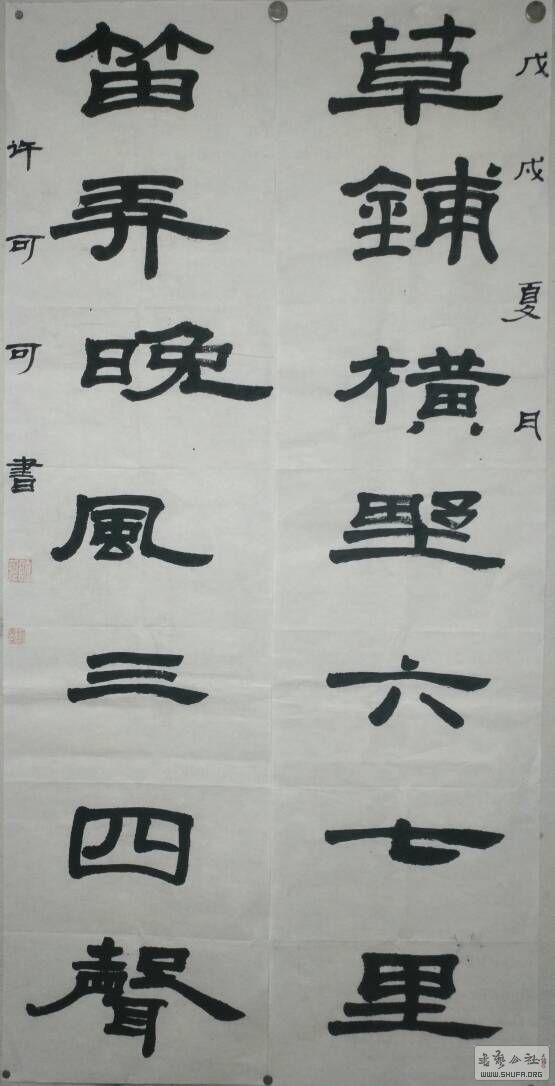 戊戌夏月
草鋪橫野六七里
笛弄晚風三四聲
许可可書
WWW.SHUFA.ORG